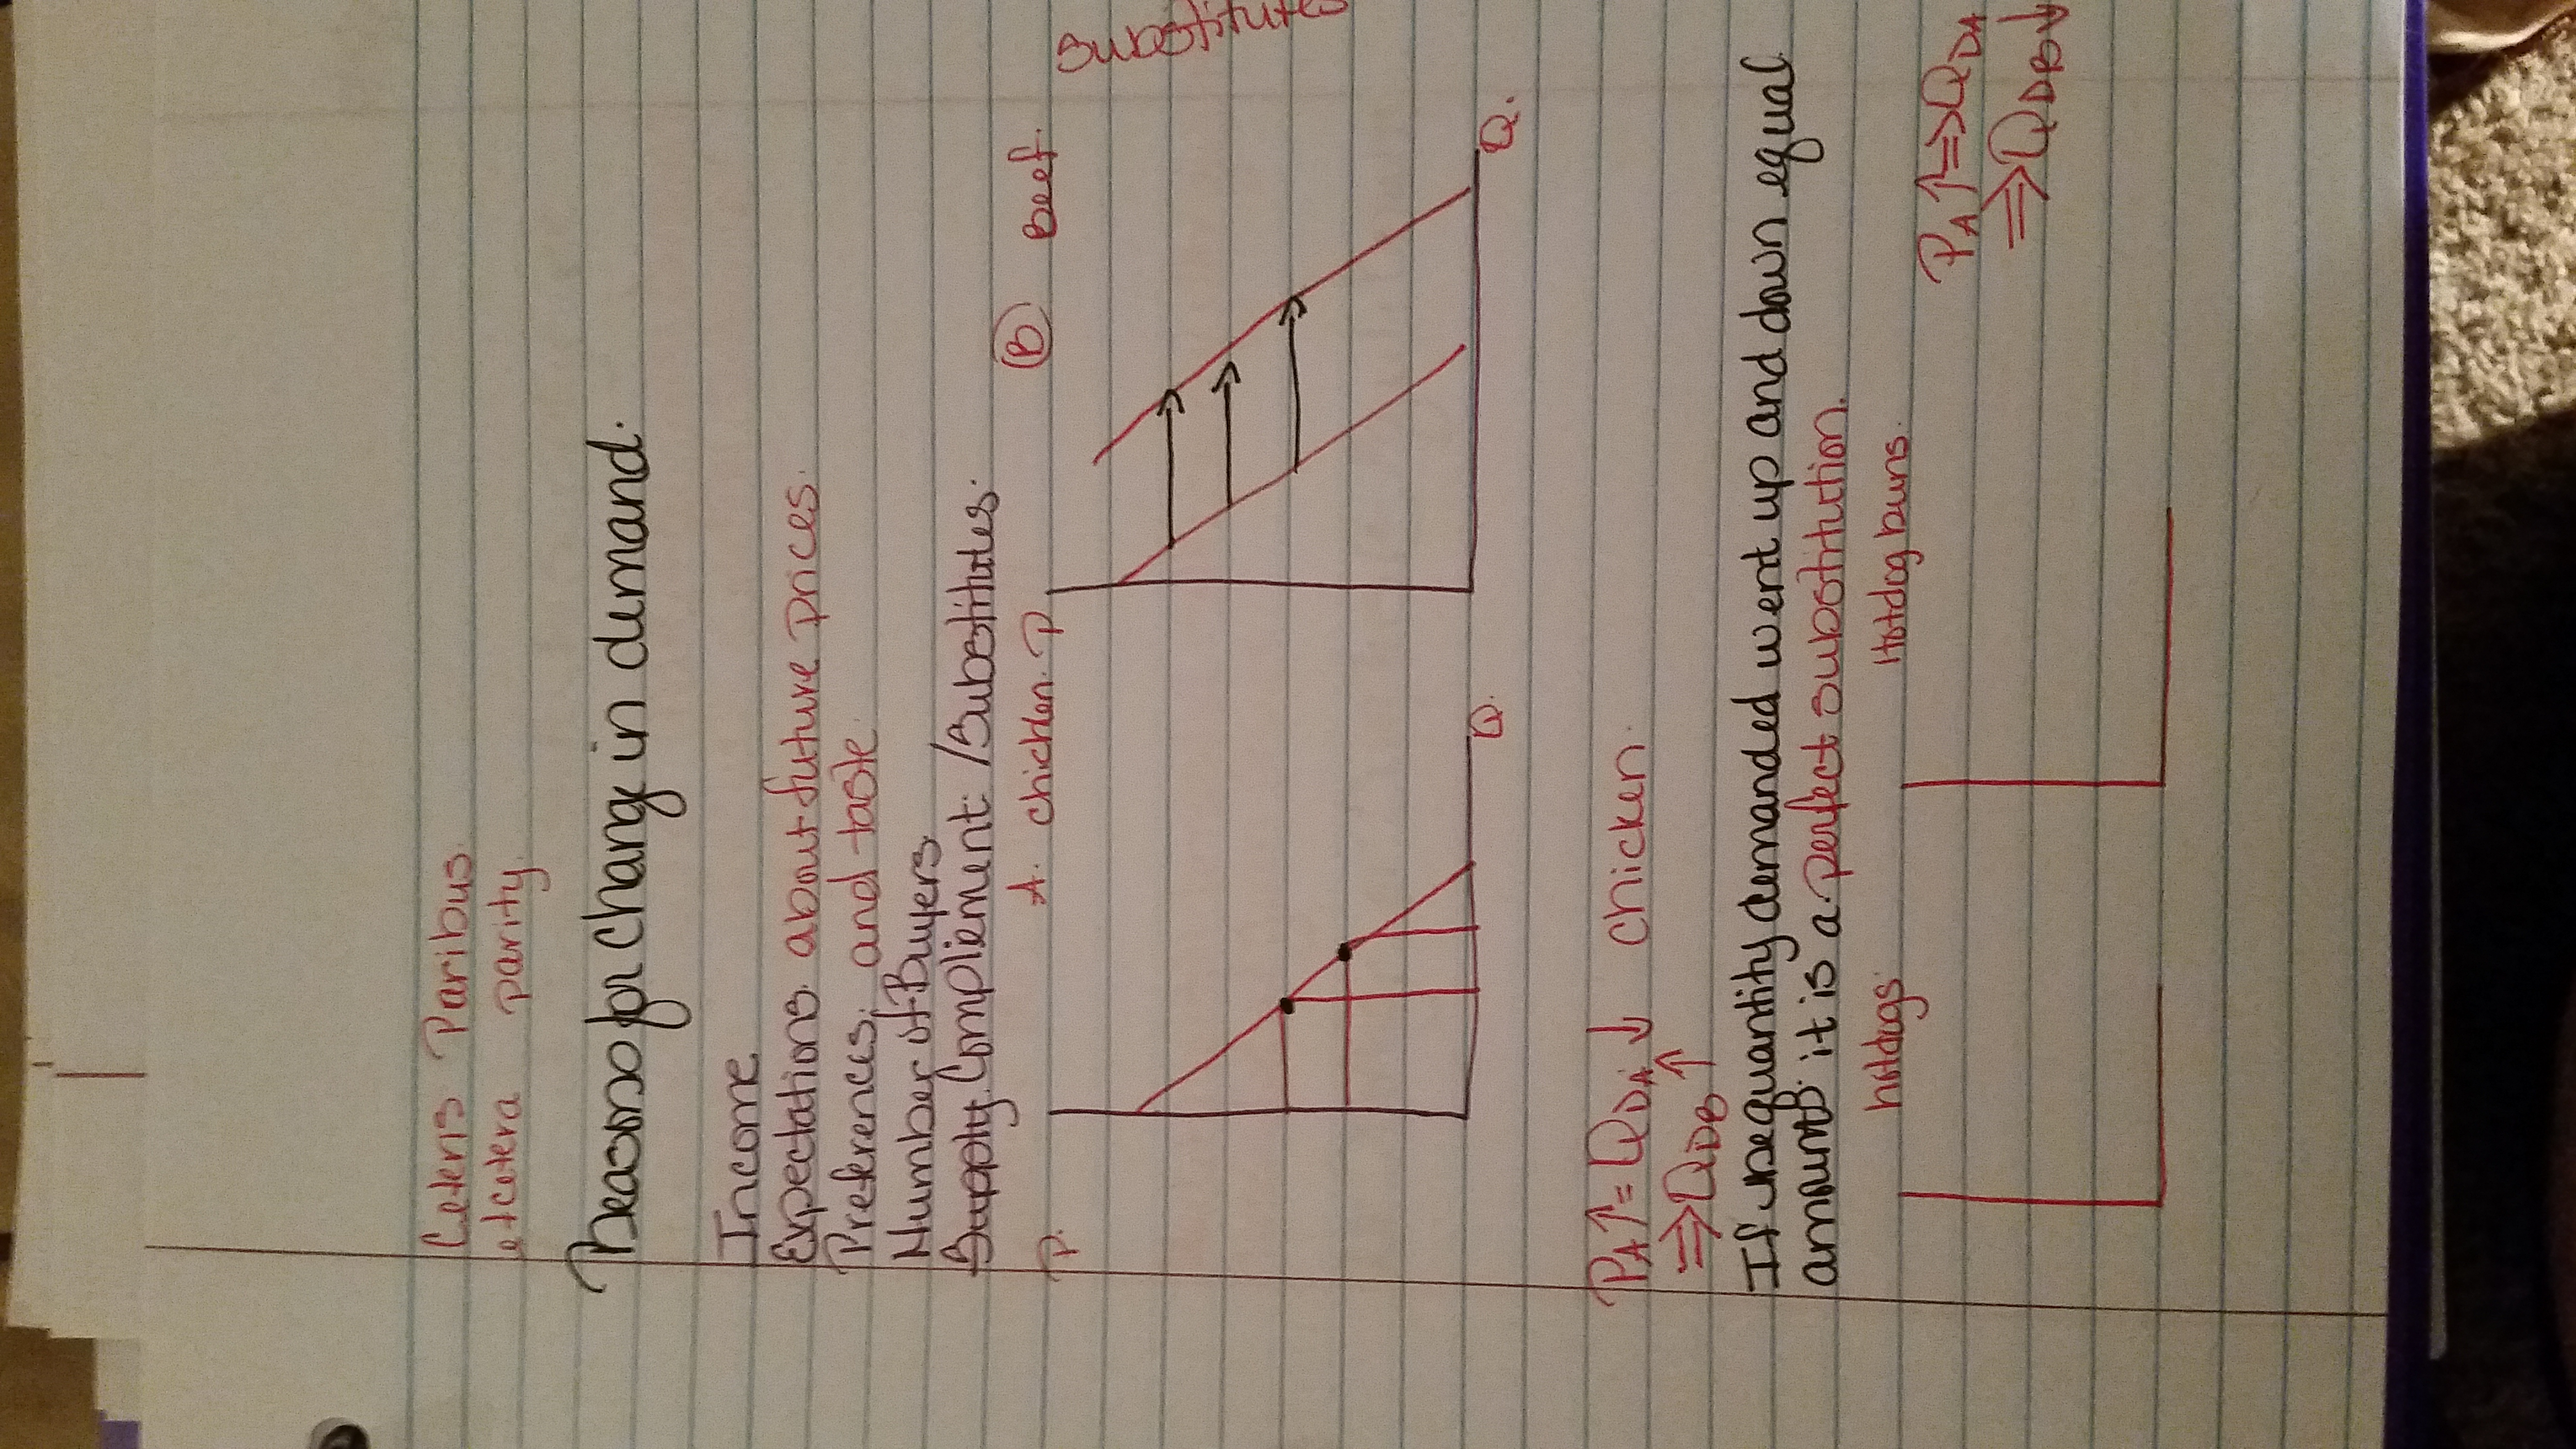 Ceteris Paribus.
etcetera parity.
Reasons for Change in demand.
Income
Expectations. about future prices.
Preferences. and taste.
Number of Buyers
Supply. Compliement. / Substitutes.
P. A. chicken. P B beef.
Substitutes
Q. Q.
PA↑ = QDA↓ chicken.
⇒ QDB↑
If quantity demanded went up and down equal
amounts. it is a perfect substitution.
hotdogs. Hotdog buns.
PA↑ ⇒ QDA
⇒ QDB↓